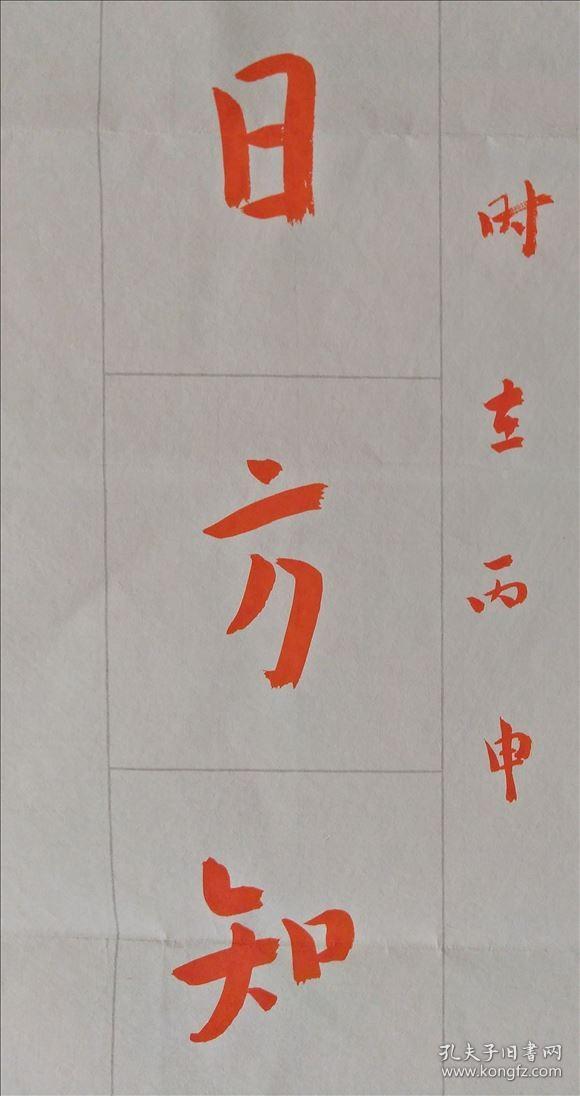 时在丙申
日方知
孔夫子旧書网
www.kongfz.com